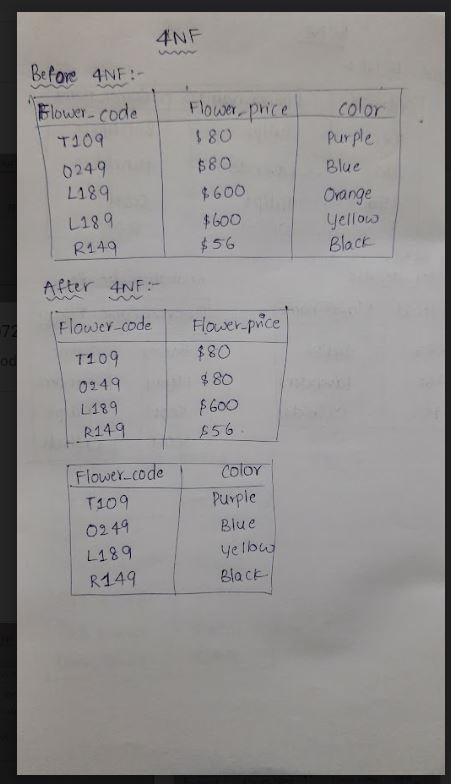 4NF
Before 4NF:-
Flower_code Flower_price color
T109 $80 Purple
O249 $80 Blue
L189 $600 Orange
L189 $600 Yellow
R149 $56 Black
After 4NF:-
Flower_code Flower_price
T109 $80
O249 $80
L189 $600
R149 $56.
Flower_code color
T109 Purple
O249 Blue
L189 Yellow
R149 Black